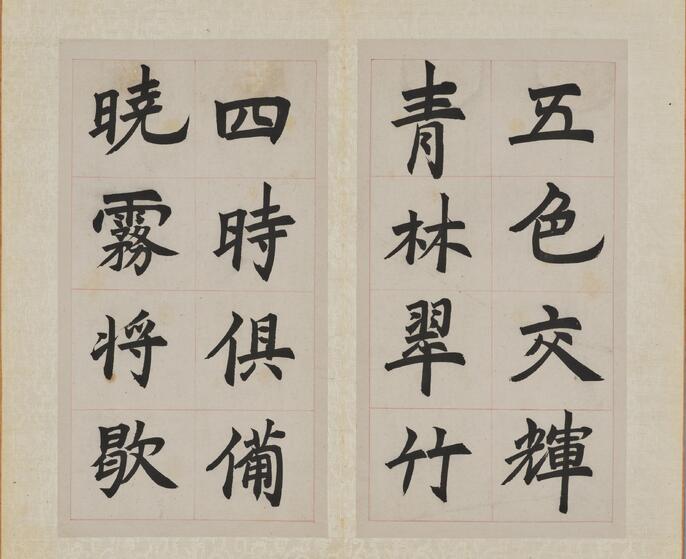 五色交輝
青林翠竹
四時俱備
暁霧将歇